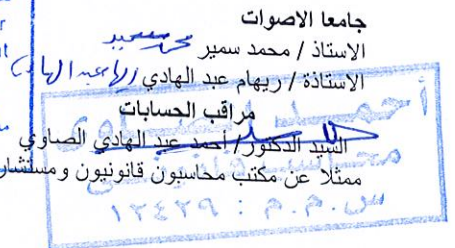 جامعا الاصوات
الاستاذ / محمد سمير محمد سمير
الاستاذة / ريهام عبد الهادي ريهام عبد الهادي
مراقب الحسابات
السيد الدكتور / احمد عبد الهادي الصاوي
ممثلا عن مكتب محاسبون قانونيون ومستشار
أحمد
محاسب قانوني
س.م.م : ١٢٤٢٩